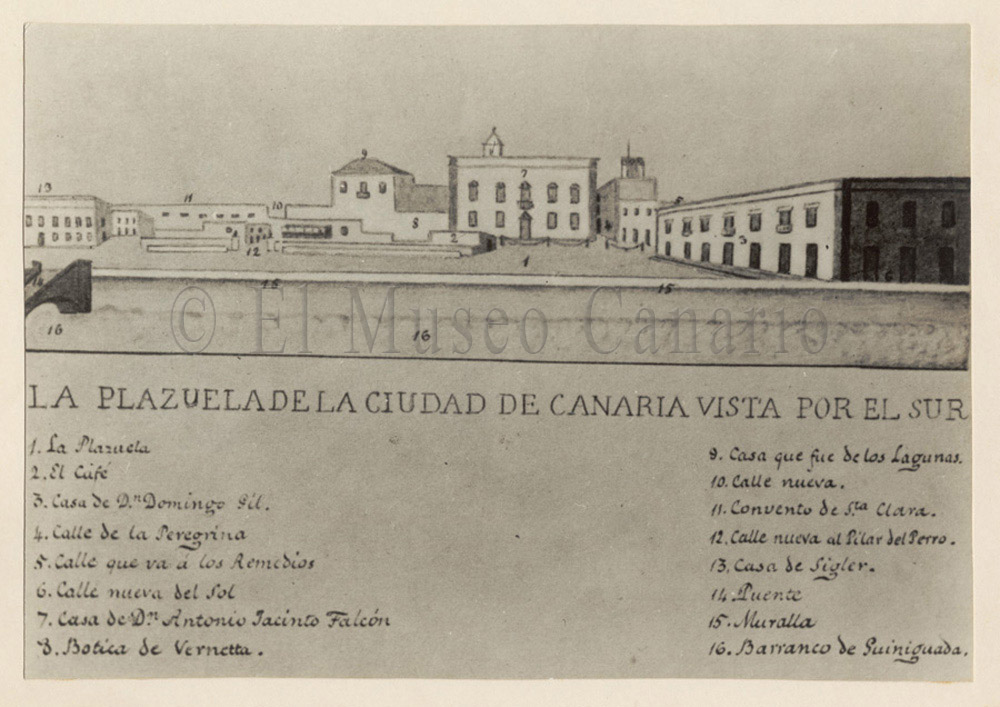 13
11
10
9
8
7
5
12
2
3
6
1
14
15
15
16
16
© El Museo Canario
LA PLAZUELA DE LA CIUDAD DE CANARIA VISTA POR EL SUR
1. La Plazuela
2. El Café
3. Casa de D.n Domingo Gil.
4. Calle de la Peregrina
5. Calle que va á los Remedios
6. Calle nueva del Sol
7. Casa de D.n Antonio Jacinto Falcón
8. Botica de Vernetta.
9. Casa que fue de los Lagunas.
10. Calle nueva.
11. Convento de S.ta Clara.
12. Calle nueva al Pilar del Perro.
13. Casa de Sigler.
14. Puente
15. Muralla
16. Barranco de Guiniguada.